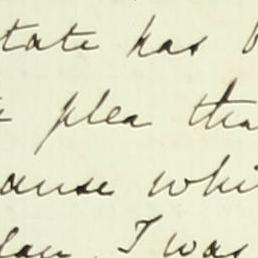 tate has b
plea tha
ause whi
law, I was